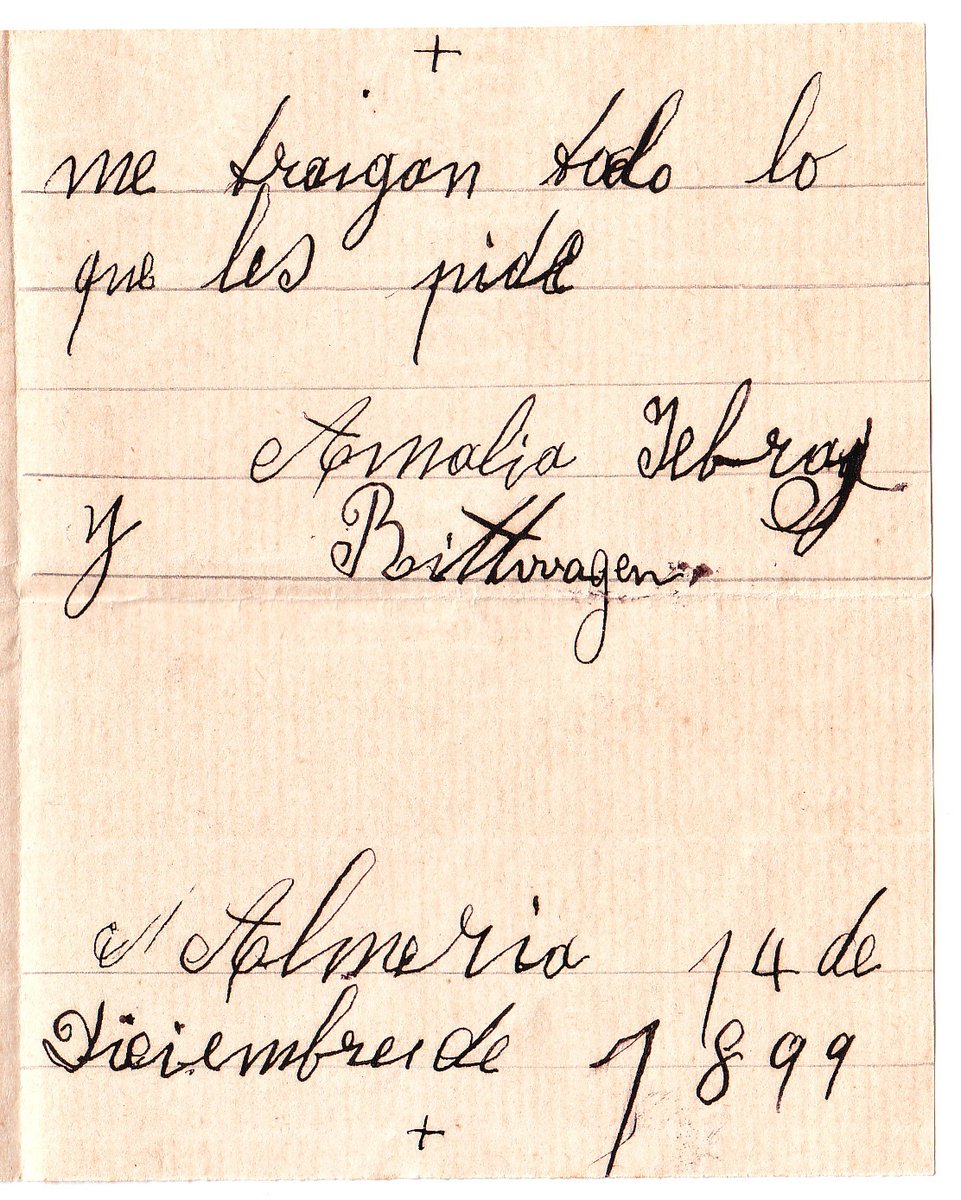 +
me traigan todo lo
que les pide
Amalia
y Rittwagen
Almeria 14 de
Diciembre de 1899
+